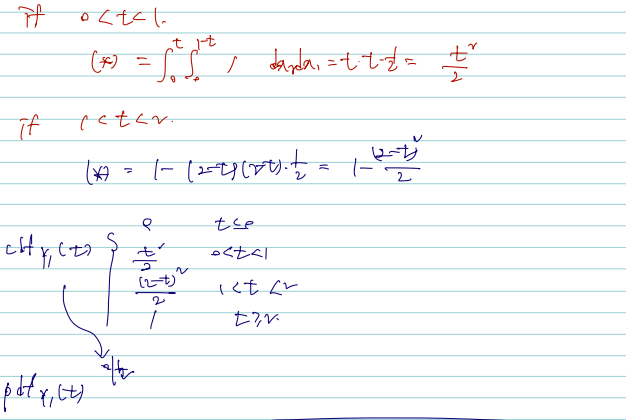 if 0<t<1.
(*) = ∫₀^t ∫₀^{1-t} 1 dx₂dx₁ = t·t·½ = t²/2
if 1<t<2.
(*) = 1-(2-t)(2-t)·½ = 1-(2-t)²/2
cdf Y₁(t) { 0 t≤0
t²/2 0<t<1
(2-t)²/2 1<t<2
1 t≥2.
d/dt
pdf Y₁(t)